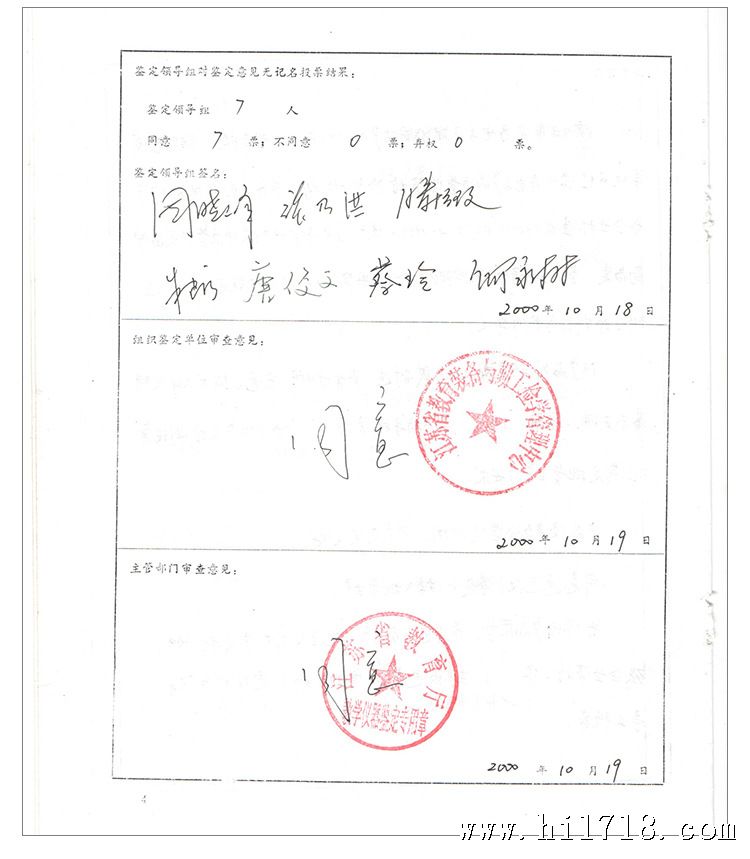 鉴定领导组对鉴定意见无记名投票结果：
鉴定领导组 7 人
同意 7 票；不同意 0 票；弃权 0 票。
鉴定领导组签名：
蔡玲
2000年 10 月 18 日
组织鉴定单位审查意见：
江苏省教育装备与勤工俭学管理中心
同意
2000年 10 月 19 日
主管部门审查意见：
江苏省教育厅
同意
教学仪器鉴定专用章
2000 年 10 月 19 日
4
www.hi1718.com